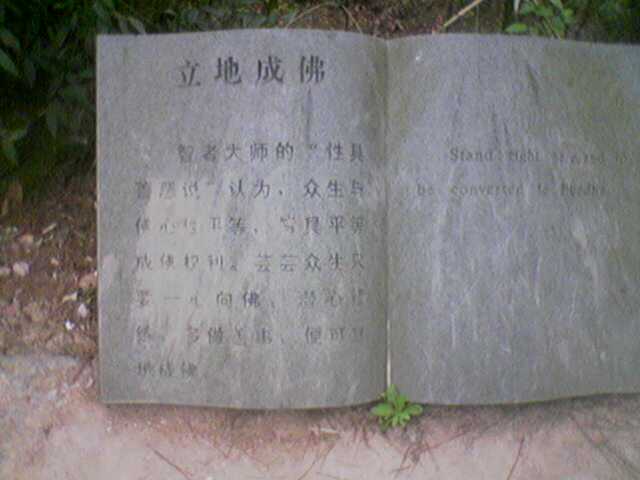 立地成佛
智者大师的“性具
善恶说”认为，众生与
佛心性平等，皆具平等
成佛权利。芸芸众生只
要一心向佛，潜心修
多做善事，便可立
地成佛
Stand right
be converted to Buddha